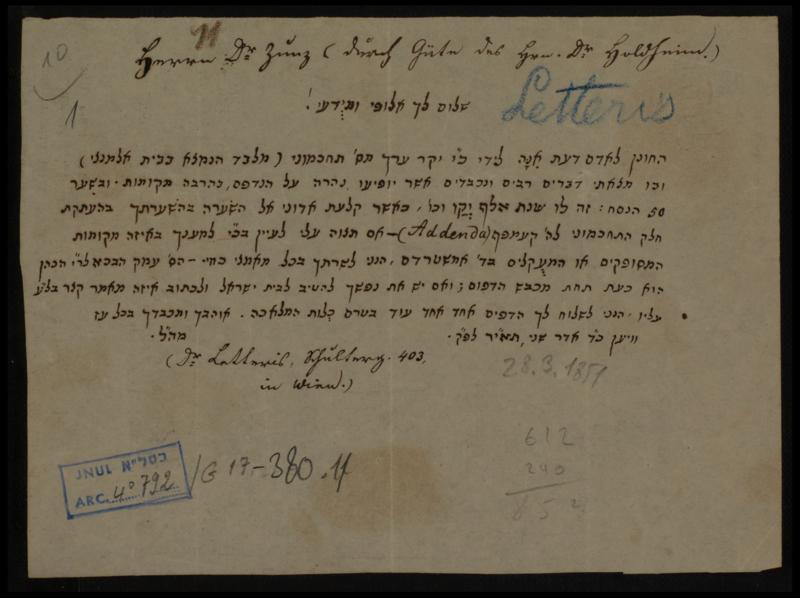 10
11
Herrn Dr Zunz (durch Güte des Hrn. Dr Holdheim.)
Letteris
1
שלום לך אלופי ומיֻדעי!
החונן לאדם דעת אִנָה לידי כ״י יקר ערך מס׳ תחכמוני (מלבד הנמלא בבית אלמנלי)
ובו מלאתי דברים רבים ונכבדים אשר יופיעו נהרה על הנדפס, בהרבה מקומות. ובשער
50 הנסח: זה לו שנת אלף וכו׳, כאשר קלעת אדוני אל השׂערה בהשערתך בהעתקת
חלק התחכמוני לה׳ קעמפף (Addenda) – אם תלוה עלי לעיין בכ״י למענך באיזה מקומות
המסופקים או המעֻקלים בד׳ אמשטרדם, הנני לשרתך בכל מאמלי כחי – הס׳ עמק הבכא לר״י הכהן
הוא כעת תחת מכבש הדפוס; ואם יש את נפשך להטיב לבית ישראל ולכתוב איזה מאמר קלר
עליו, הנני לשלוח לך הדפים אחד אחד עוד בטרם כְלות המלאכה. אוהבך ומכבדך בכל עז
וויען כ״ד אדר שני, תאי״ר לפ״ק. מה״ל.
(Dr Letteris, Schulterg. 403,
in Wien.)
28.3.1851
612
240
852
בסל״א JNUL
ARC. 4° 792 / G 17-380.11